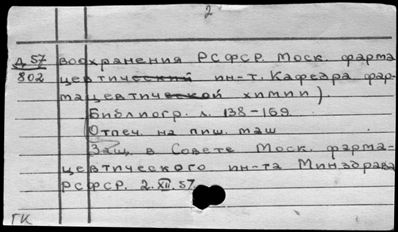 2
Д 57 воохранения РСФСР. Моск. фарма
802 цевтический ин-т. Кафедра фар-
мацевтической химии).
Библиогр. л. 138-169.
Отпеч. на пиш. маш
Защ. в Совете Моск. фарма-
цевтического ин-та Минздрава
РСФСР. 2.XII.57.
ГК